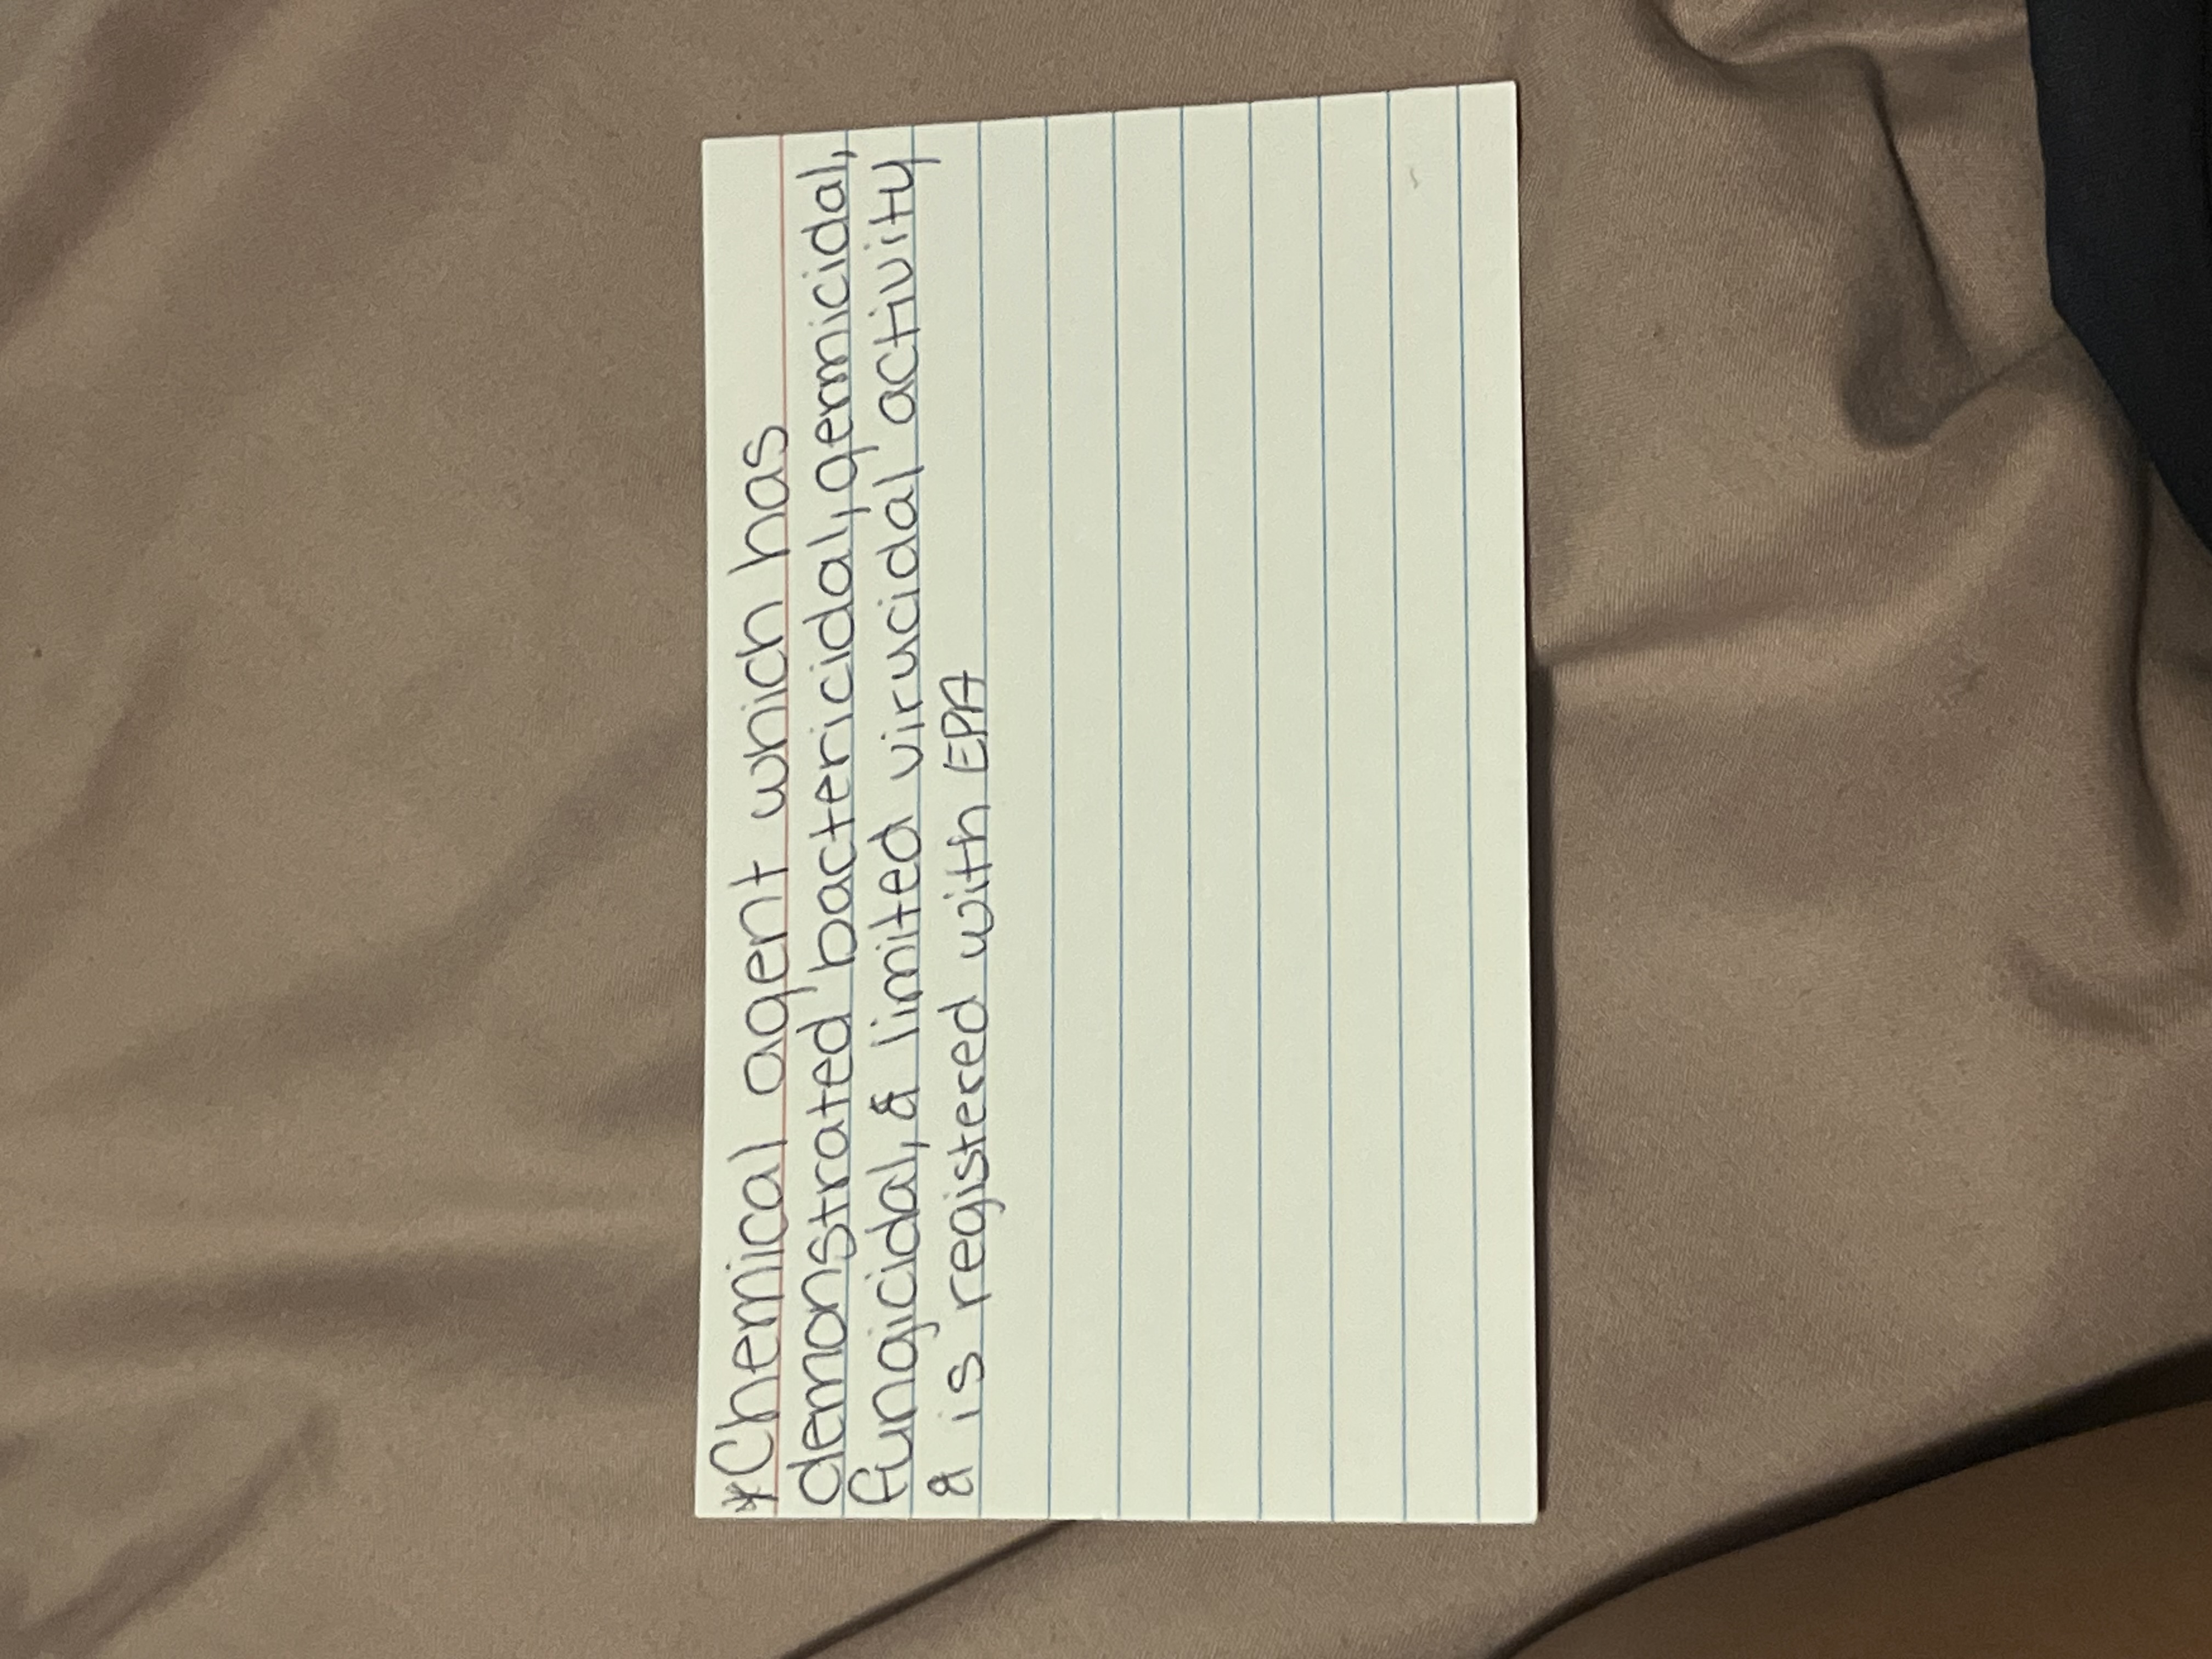 *Chemical agent which has
demonstrated bactericidal, germicidal,
fungicidal, & limited virucidal activity
& is registered with EPA